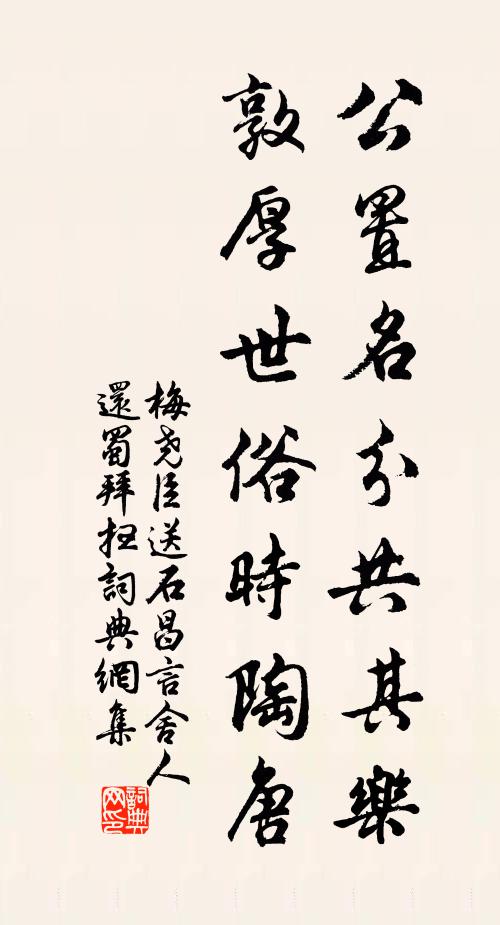 公置名分共其樂
敦厚世俗時陶唐
梅堯臣送石昌言舍人
還蜀拜掃詞典網集
詞典网印